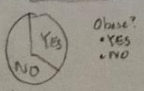 YES
NO
Obese?
• YES
• NO